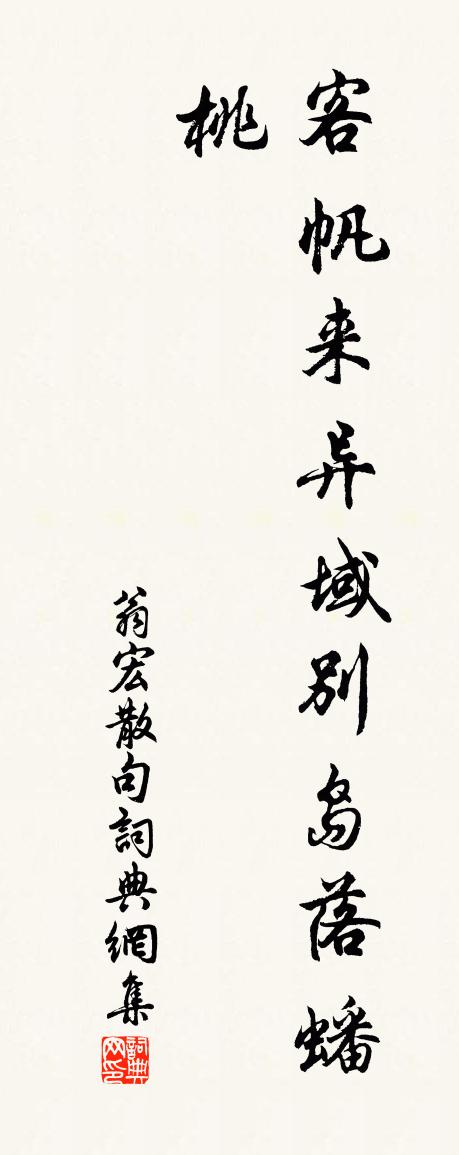 客帆来异域别岛落蟠
桃
翁宏散句詞典網集
詞典网印